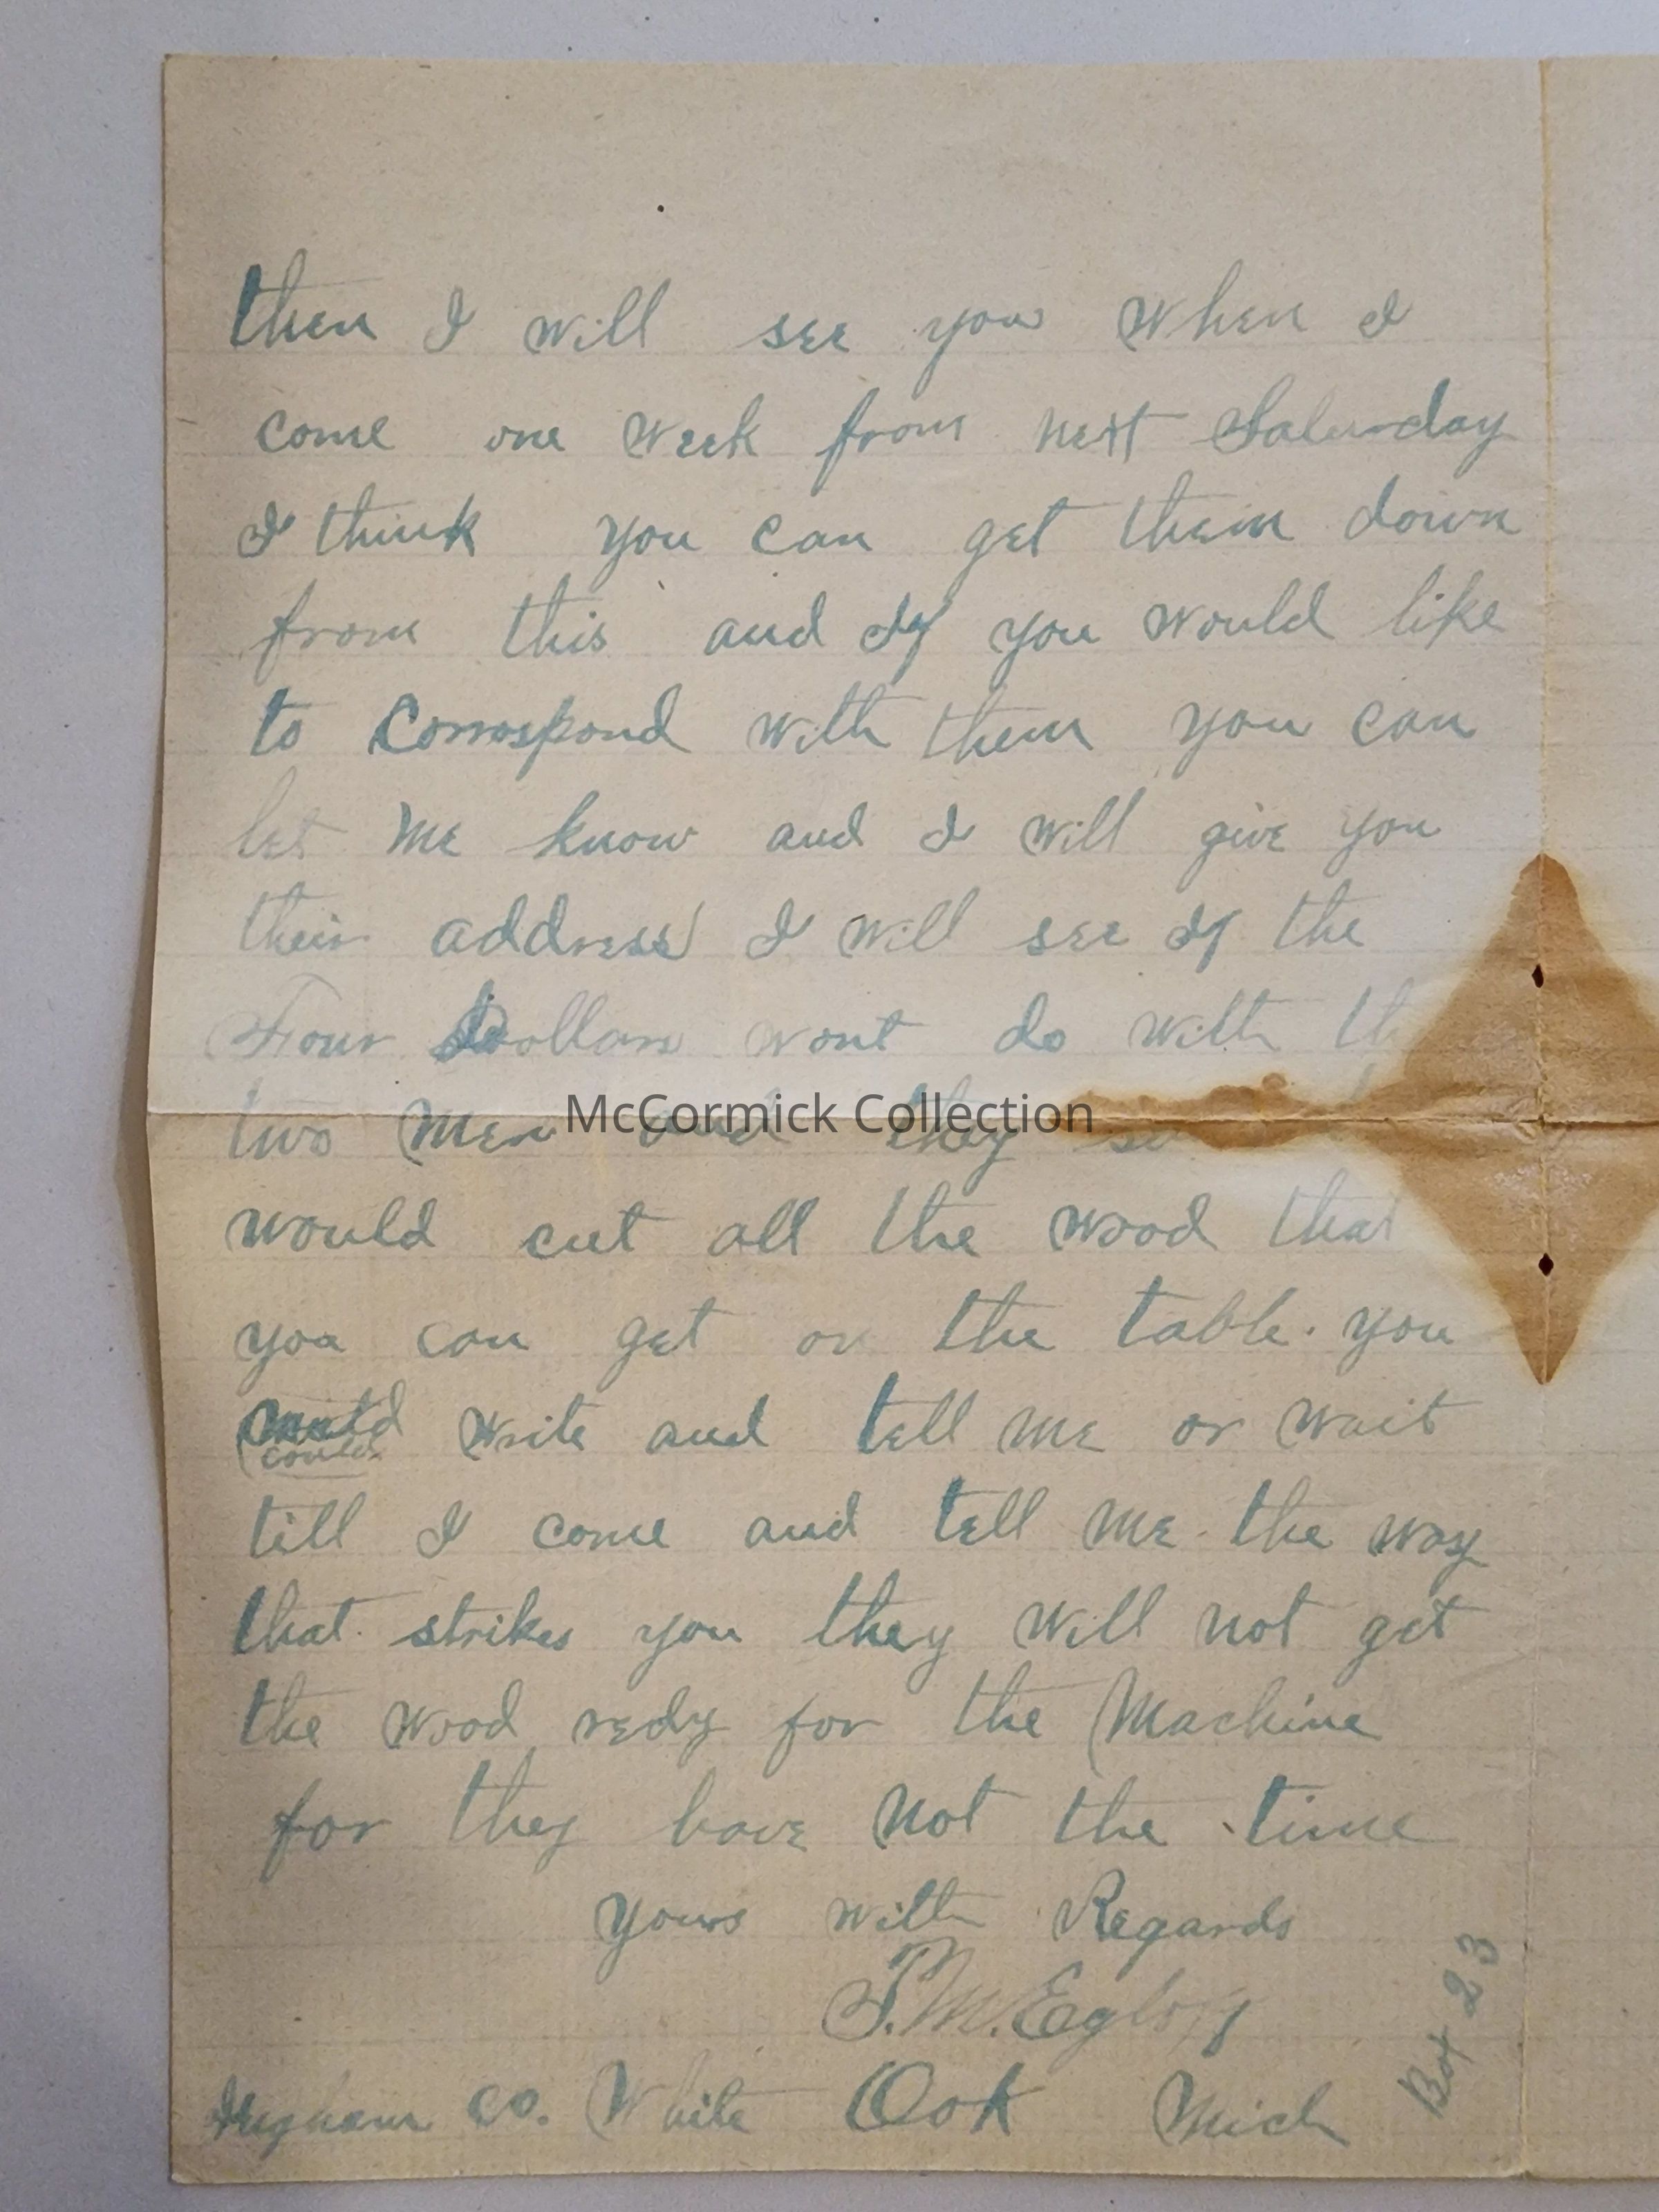 then I will see you when I
come one week from next Saturday
I think you can get them down
from this and If you would like
to Correspond with them you can
let me know and I will give you
their address I will see If the
Four Dollars wont do with
two Men and they
McCormick Collection
would cut all the wood that
you can get on the table. you
could write and tell me or wait
till I come and tell me the way
that strikes you they will not get
the wood redy for the Machine
for they have not the time
Yours with Regards
Ingham Co. White Oak Mich
Box 23